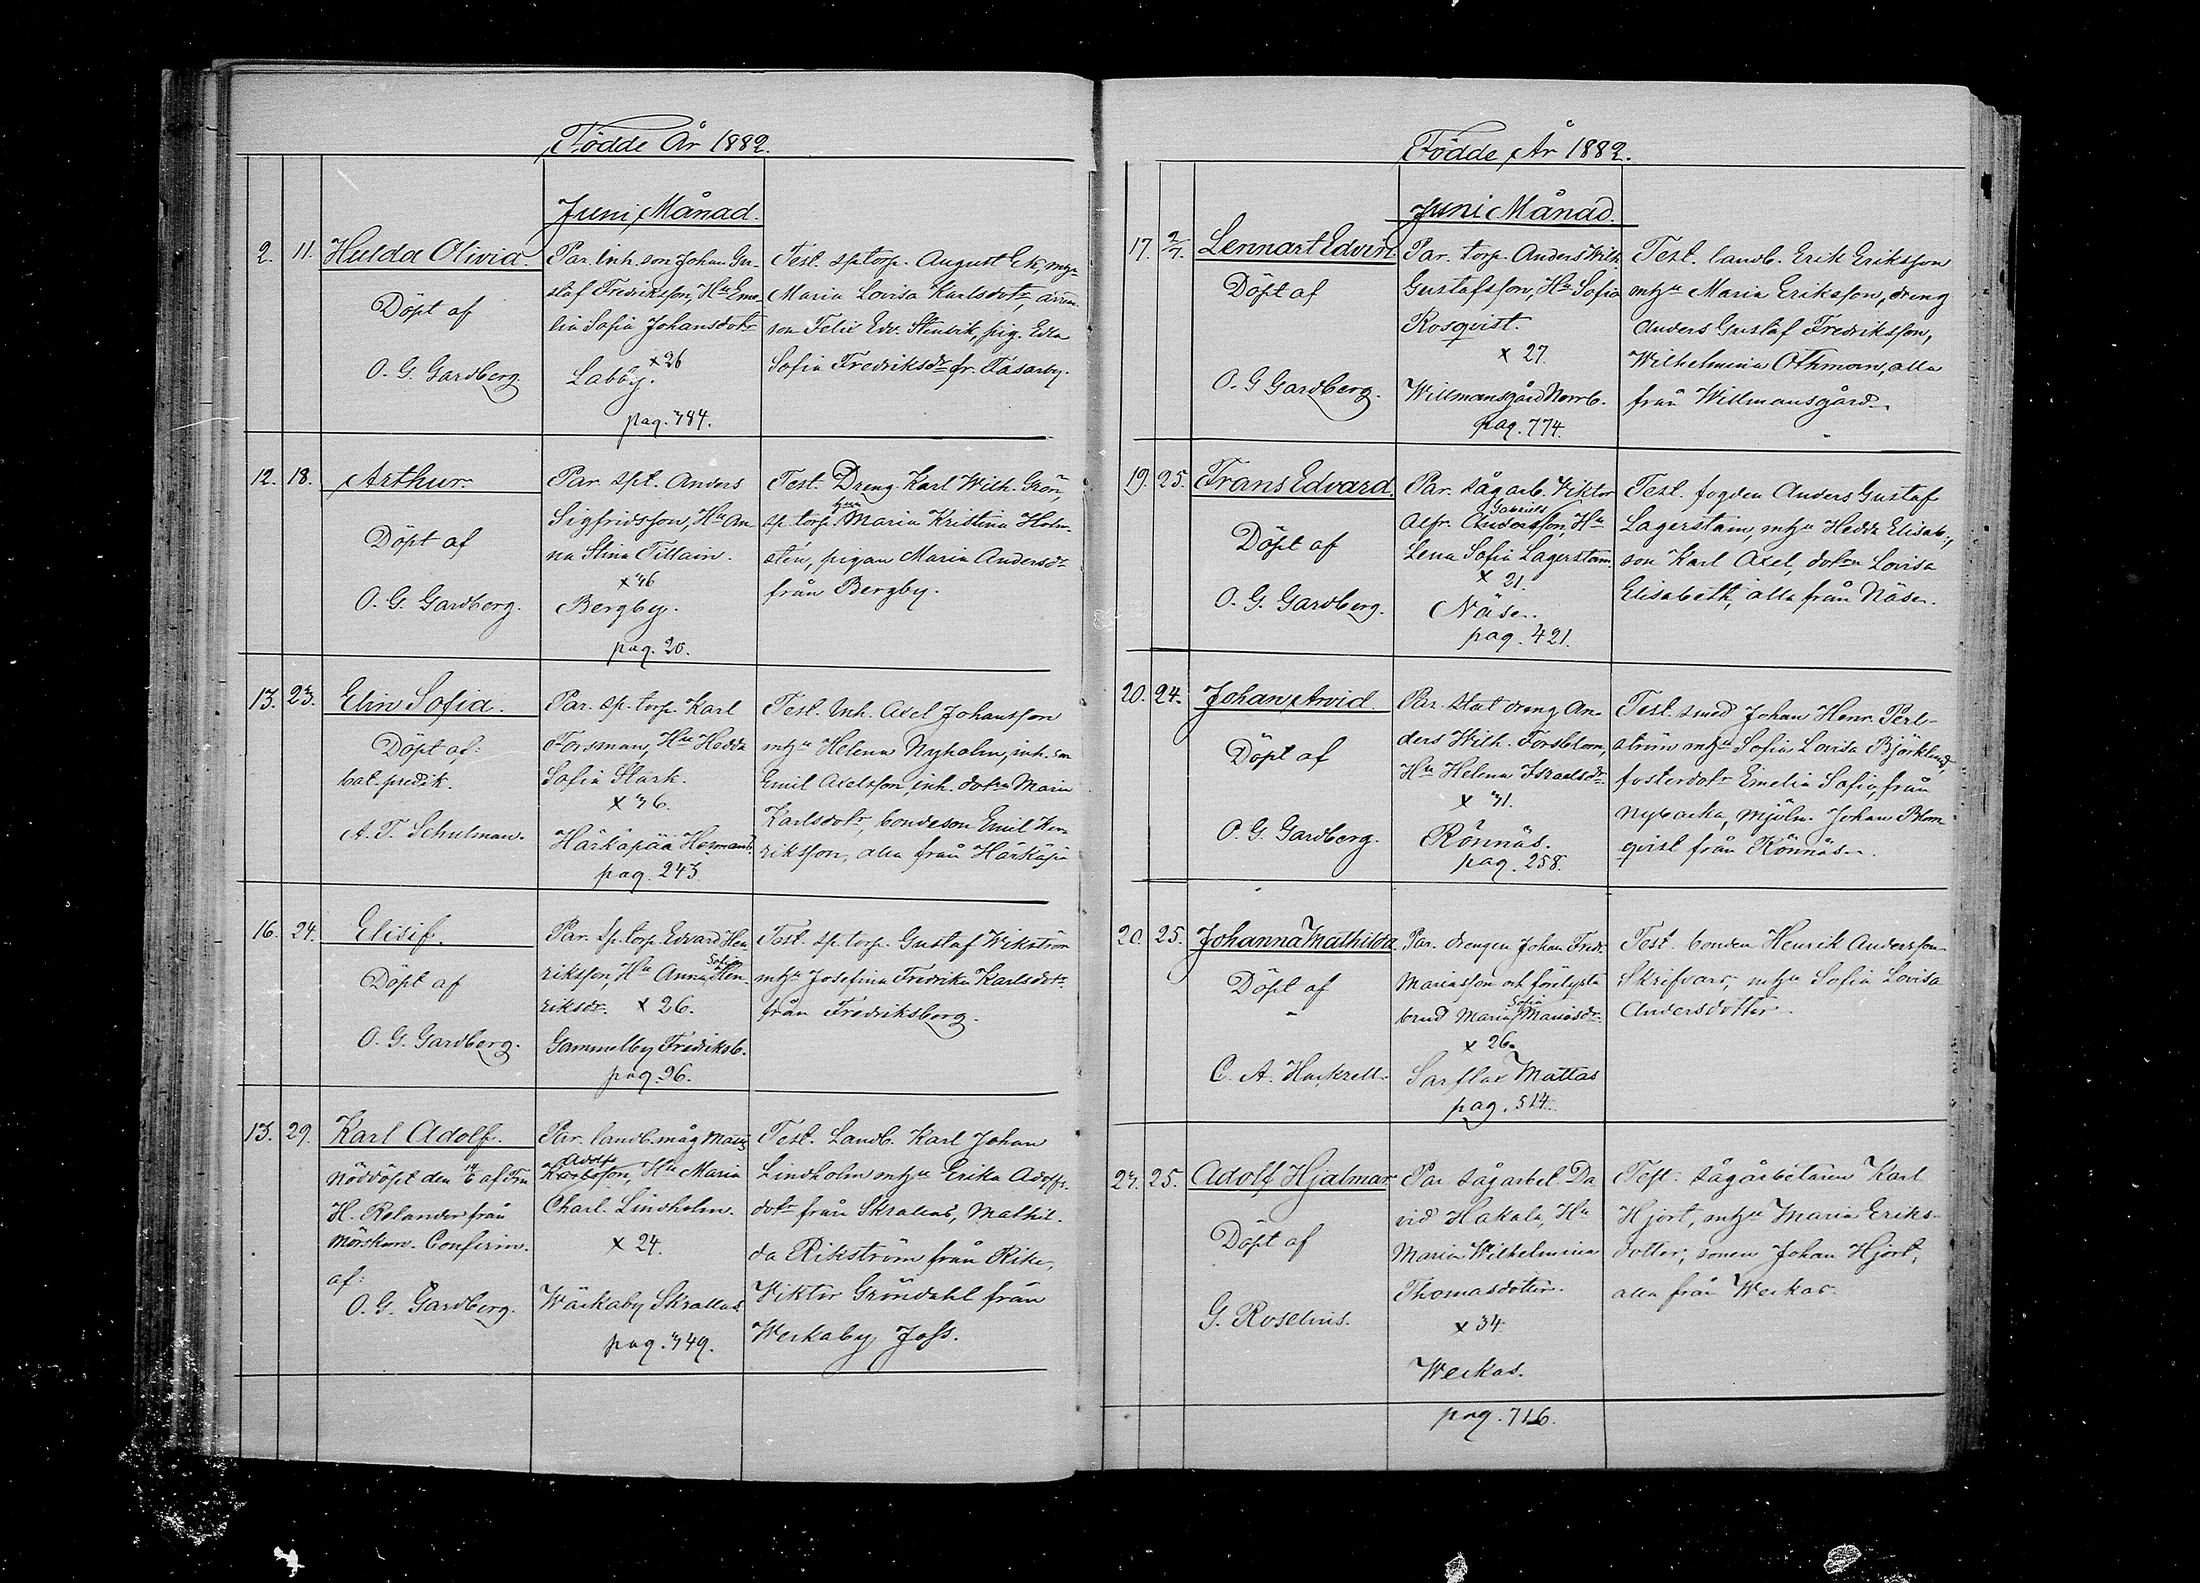 Födde År 1882.
Juni Månad.
2. 11. Hulda Olivia.
Döpt af
O. G. Gardberg.
Par. Inh. son Johan Gu-
staf Fredriksson, Hu Eme-
lia Sofia Johansdotr
x 26
Labby.
pag. 384.
Test. sp. torp. August Ek, mhu
Maria Lovisa Karlsdotr,
son Felix Edv. Stenvik, pig. Edla
Sofia Fredriksdr fr. Tasarby.
12. 18. Arthur.
Döpt af
O. G. Gardberg.
Par. spt. Anders
Sigfridsson, Hu An
na Stina Tillain.
x 36
Bergby.
pag. 20.
Test. Dreng Karl Wilh. Grön,
sp. torp. Maria Kristina Holm-
stén, pigan Maria Andersdr
från Bergby.
13. 23. Elin Sofia.
Döpt af:
bat. predik.
A. T. Schulman.
Par. sp. torp. Karl
Forsman, Hu Hedda
Sofia Stark.
x 36.
Härkäpää Hermans.
pag. 243
Test. Inh. Axel Johansson
mhu Helena Nyholm, inh. son
Emil Axelsson, inh. dotrn Maria
Karlsdotr, bondeson Emil Hen
riksson, alla från Härkäpä
16. 24. Elisif.
Döpt af
O. G. Gardberg.
Par. Sp. torp. Edvard Hen-
riksson, Hu Anna Sofia Hen-
riksdr. x 26.
Gammelby Fredriksb.
pag. 96.
Test. sp. torp. Gustaf Wikström
mhu Josefina Fredrika Karlsdotr
från Fredriksberg.
13. 29. Karl Adolf.
Nöddöpt den 14/6 af Fru
H. Rolander från
Mörskom. Confirm.
af:
O. G. Gardberg.
Par. landb. måg Matts
Adolf
Karlsson, Hu Maria
Charl. Lindholm.
x 24.
Wäckaby Skrallas
pag. 349.
Test. Landb. Karl Johan
Lindholm mhu Erika Adolfs-
dotr från Skrallas, Mathil-
da Rikström från Rike,
Viktor Gröndahl från
Weckaby Joss.
Födde År 1882.
Juni Månad.
17. 2/7. Lennart Edvin
Döpt af
O. G. Gardberg.
Par. torp. Anders Wilh.
Gustafsson, Hu Sofia
Rosqvist.
x 27.
Willmansgård Norrb.
pag. 774.
Test. landb. Erik Eriksson
mhu Maria Eriksson, dreng
Anders Gustaf Fredriksson,
Wilhelmina Othman, alla
från Willmansgård.
19. 25. Frans Edvard.
Döpt af
O. G. Gardberg.
Par. sågarb. Viktor
Gabriels
Alfr. Andersson, Hu
Lena Sofia Lagerstam.
x 21.
Näse.
pag. 421.
Test. fogden Anders Gustaf
Lagerstam, mhu Hedda Elisab.,
son Karl Axel, dotrn Lovisa
Elisabeth, alla från Näse.
20. 24. Johan Arvid.
Döpt af
O. G. Gardberg.
Par. stat dreng An-
ders Wilh. Forsblom,
Hu Helena Israelsdr
x 31.
Rönnäs.
pag. 258.
Test. smed Johan Henr. Perl-
ström mhu Sofia Lovisa Björklund,
fosterdotr Emelia Sofia, från
Nybacka, mjöln. Johan Blom
qvist från Rönnäs.
20. 25. Johanna Mathilda.
Döpt af
C. A. Hackzell.
Par. drengen Johan Fredr.
Mariasson och förelysta
Sofia
brud Maria Mariasdr
x 26.
Sarflax Mattas
pag. 514.
Test. bonden Henrik Andersson
Skrifvars, mhu Sofia Lovisa
Andersdotter.
23. 25. Adolf Hjalmar
Döpt af
G. Roselius.
Par. sågarbet. Da
vid Hakala, Hu
Maria Wilhelmina
Thomasdotter.
x 34
Weckas.
pag. 716.
Test. sågarbetaren Karl
Hjort, mhu Maria Eriks-
dotter, sonen Johan Hjort,
alla från Weckas.